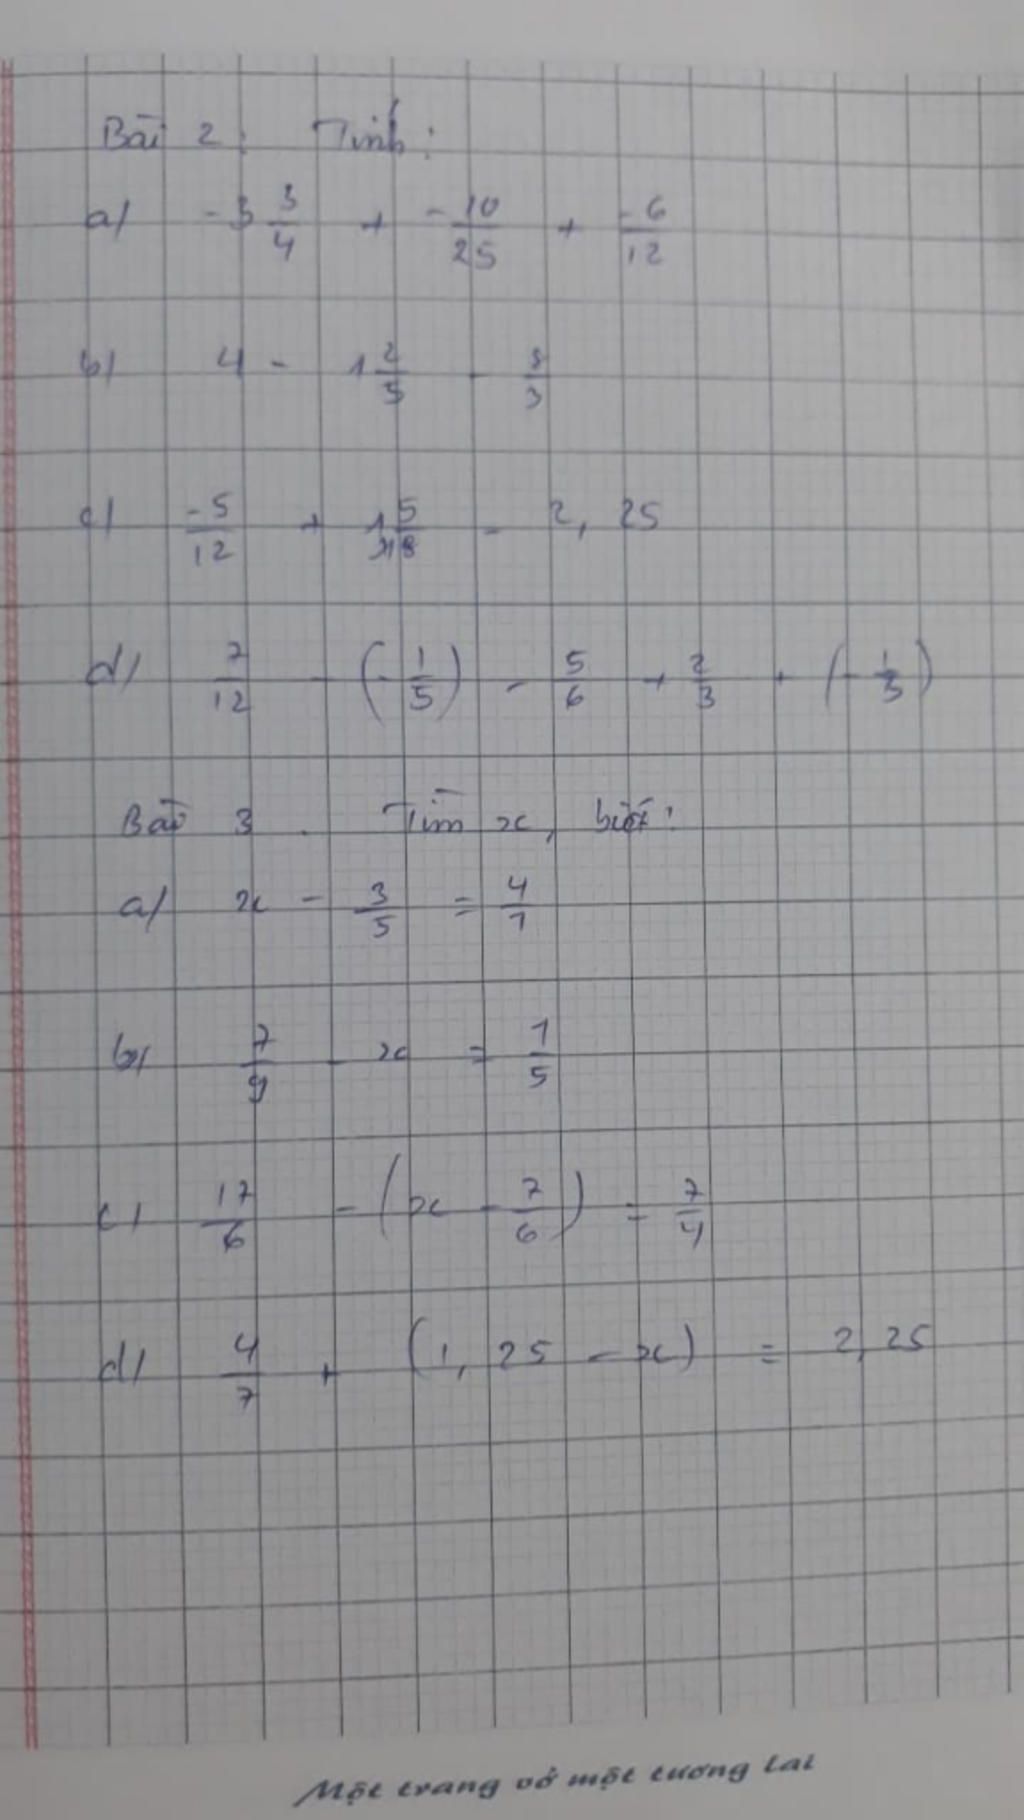 Bài 2: Tính:
a/ -3 3/4 + -10/25 + -6/12
b/ 4 - 1 2/5 - 8/3
c/ -5/12 + 1 5/18 - 2,25
d/ 7/12 - (-1/5) - 5/6 + 2/3 + (-1/3)
Bài 3. Tìm x, biết:
a/ x - 3/5 = 4/7
b/ 7/9 - x = 1/5
c/ 17/6 - (x - 7/6) = 7/4
d/ 4/7 + (1,25 - x) = 2,25
Một trang vở một tương lai